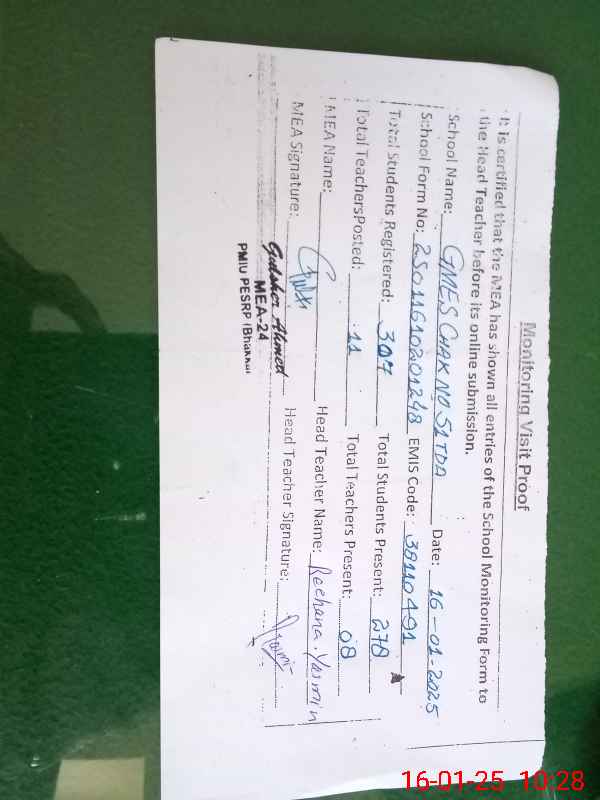 Monitoring Visit Proof
It is certified that the MEA has shown all entries of the School Monitoring Form to
the Head Teacher before its online submission.
School Name: GMES CHAK NO 51 TDA Date: 16-01-2025
School Form No: EMIS Code: 38110491
Total Students Registered: 307 Total Students Present: 278
Total TeachersPosted: 11 Total Teachers Present: 08
MEA Name: Head Teacher Name: Reehana Yasmin
MEA Signature: Head Teacher Signature:
Gulsher Ahmed
MEA-24
PMIU PESRP (Bhakkar
16-01-25 10:28